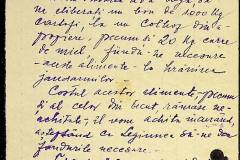 ne eliberati un bon de 1000 Kg
cartofi, la un Colhoz din a-
propiere, precum si 20 Kg carne
de miel fiindu-ne necesare
aceste alimente la hrănirea
jandarmilor
Costul acestor alimente, precum
si al celor din trecut rămase ne-
achitate, il vom achita imediat,
asteptând ca Legiunea să-ne dea
fondurile necesare.